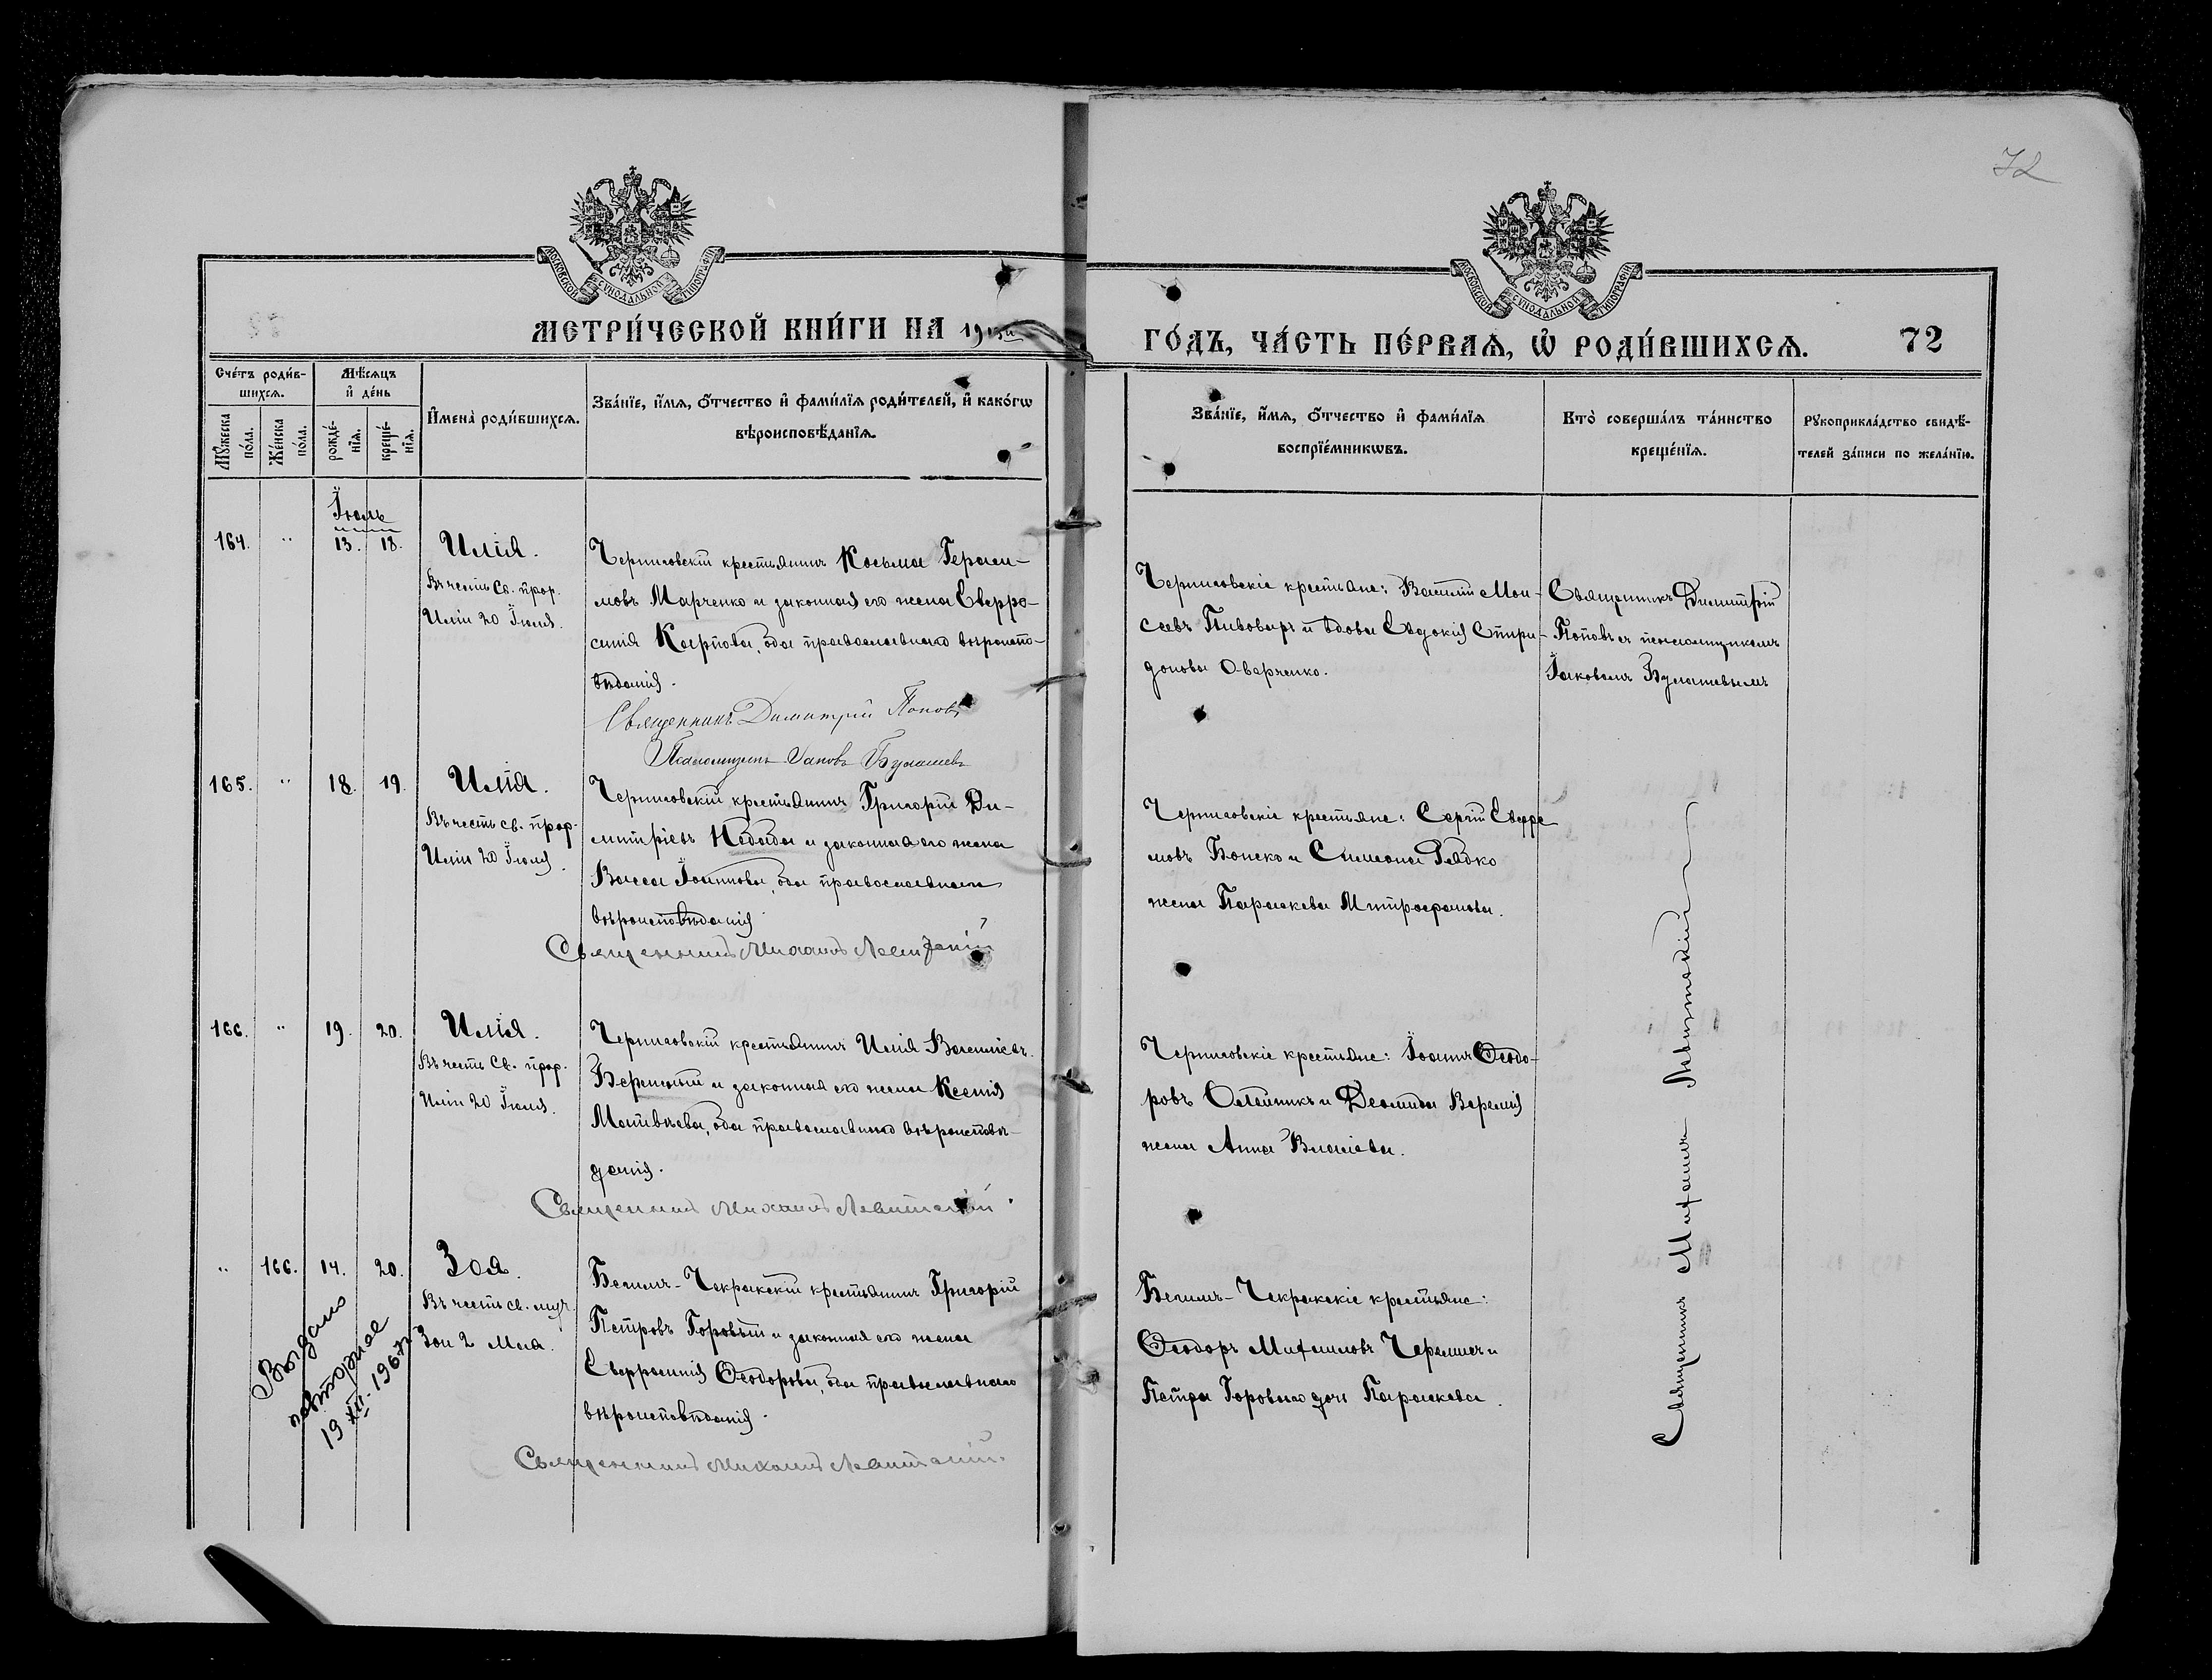 72
МОСКОВСКОЙ СѴНОДАЛЬНОЙ ТИПОГРАФІИ
МОСКОВСКОЙ СѴНОДАЛЬНОЙ ТИПОГРАФІИ
МЕТРИ́ЧЕСКОЙ КНИ́ГИ НА
ГО́ДЪ, ЧА́СТЬ ПЕ́РВАЯ, Ѡ РОДИ́ВШИХСЯ.
72
Сче́тъ роди́в-
шихся.
Мѣ́сяцъ
и де́нь
Мꙋ́жеска
по́ла.
Же́нска
по́ла.
рожде́-
нїя.
креще́-
нїя.
И҆мена̀ роди́вшихся.
Зва́нїе, и҆́мя, ѻ҆́тчество и҆ фами́лїя роди́телей, и҆ како́гѡ
вѣроисповѣ́данїя.
Зва́нїе, и҆́мя, ѻ҆́тчество и҆ фами́лїя
воспрїе́мникѡвъ.
Кто̀ соверша́лъ та́инство
креще́нїя.
Рꙋкоприкла́дство свидѣ́-
телей за́писи по жела́нїю.
Іюль
164. " 13. 18. Илія.
Въ честь Св. прор.
Иліи 20 Іюля.
Черниговскій крестьянинъ Косьма Гераси-
мовъ Марченко и законная его жена Евфро-
синія Карпова, оба православнаго вѣроиспо-
вѣданія.
Священникъ Димитрій Поповъ
Псаломщикъ Іаковъ Булашевъ
Черниговскіе крестьяне: Василій Мои-
сеевъ Пивоваръ и вдова Евдокія Спири-
донова Оварченко.
Священникъ Димитрій
Поповъ съ псаломщикомъ
Іаковомъ Булашевымъ
165. " 18. 19. Илія.
Въ честь св. прор.
Иліи 20 Іюля.
Черниговскій крестьянинъ Григорій Ди-
митріевъ Недъда и законная его жена
Васса Іоаннова, оба православнаго
вѣроисповѣданія
Священникъ Михаилъ Левитскій
Черниговскіе крестьяне: Сергій Ефре
мовъ Бонско и Симеона Рядко
жена Параскева Митрофанова.
166. " 19. 20. Илія.
Въ честь Св. прор.
Иліи 20 Іюля.
Черниговскій крестьянинъ Илія Васильевъ
и законная его жена Ксенія
Матвѣева, оба православнаго вѣроисповѣ-
данія.
Священникъ Михаилъ Левитскій.
Черниговскіе крестьяне: Іоаннъ Ѳеодо-
ровъ Олейникъ и Деомида Веремія
жена Анна Власіева.
" 166. 14. 20. Зоя.
Въ честь св. муч.
Зои 2 Мая.
Бегимъ-Чокракскій крестьянинъ Григорій
Петровъ Горовый и законная его жена
Евфросинія Ѳеодорова, оба православнаго
вѣроисповѣданія.
Священникъ Михаилъ Левитскій.
Бегимъ-Чокракскіе крестьяне:
Ѳеодоръ Михаиловъ и
Петра Горового дочь Параскева.
Священникъ Михаилъ Левитскій
Выдано
повторное
19 XII-1967г